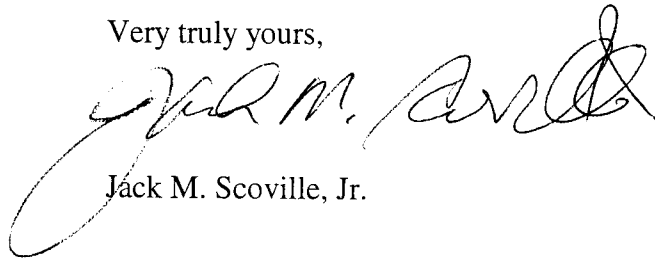 Very truly yours,
Jack M. Scoville
Jack M. Scoville, Jr.